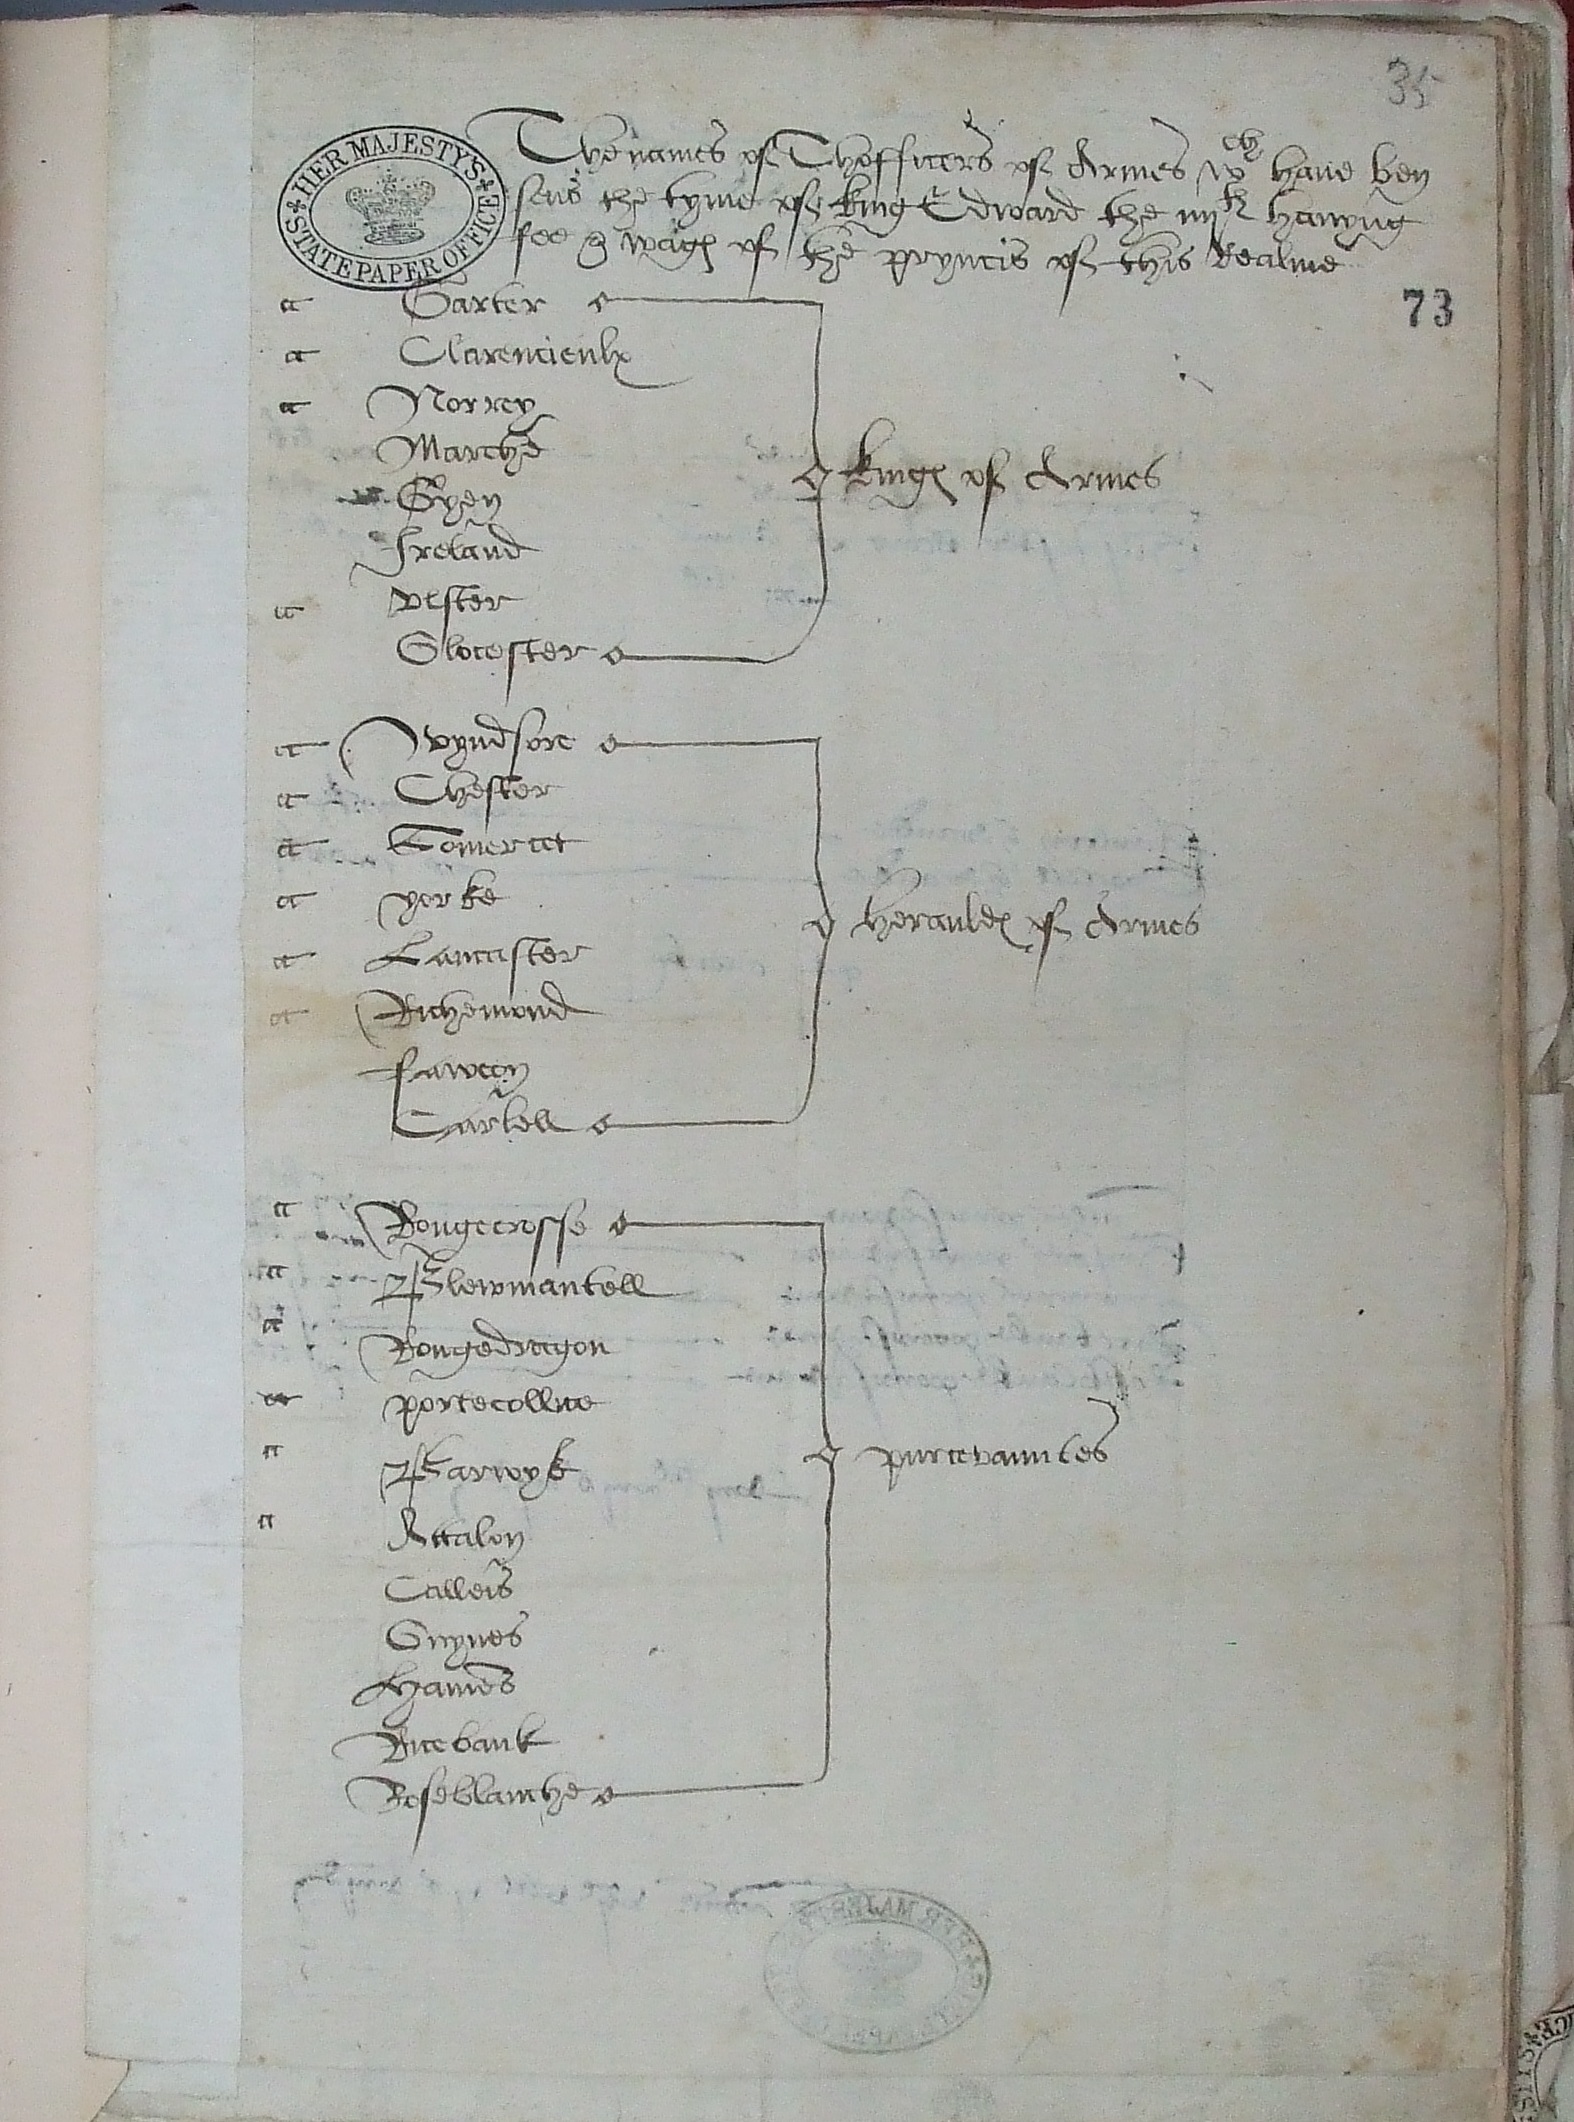 35
HER MAJESTY'S STATE PAPER OFFICE
The names of Thofficers of Armes wch have ben
sens the tyme of king Edward the iiijth havyng
fee & wages of the pryncis of this Realme
73
Garter
Clarencieulx
Norrey
Marche
Gyen
Ireland
Ulster
Glocester
kinges of Armes
Wyndsore
Chester
Somercet
yorke
Lancaster
Richemond
Fawcon
Carlell
herauldes of Armes
Rougecrosse
Blewmantell
Rougedragon
portecollice
Barwyk
Attalon
Calleis
Guynes
Hames
Ricebank
Roseblanche
purcevauntes